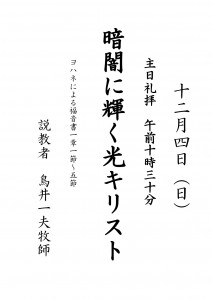 十二月四日（日）
主日礼拝　午前十時三十分
暗闇に輝く光キリスト
ヨハネによる福音書一章一節～五節
説教者　鳥井一夫牧師